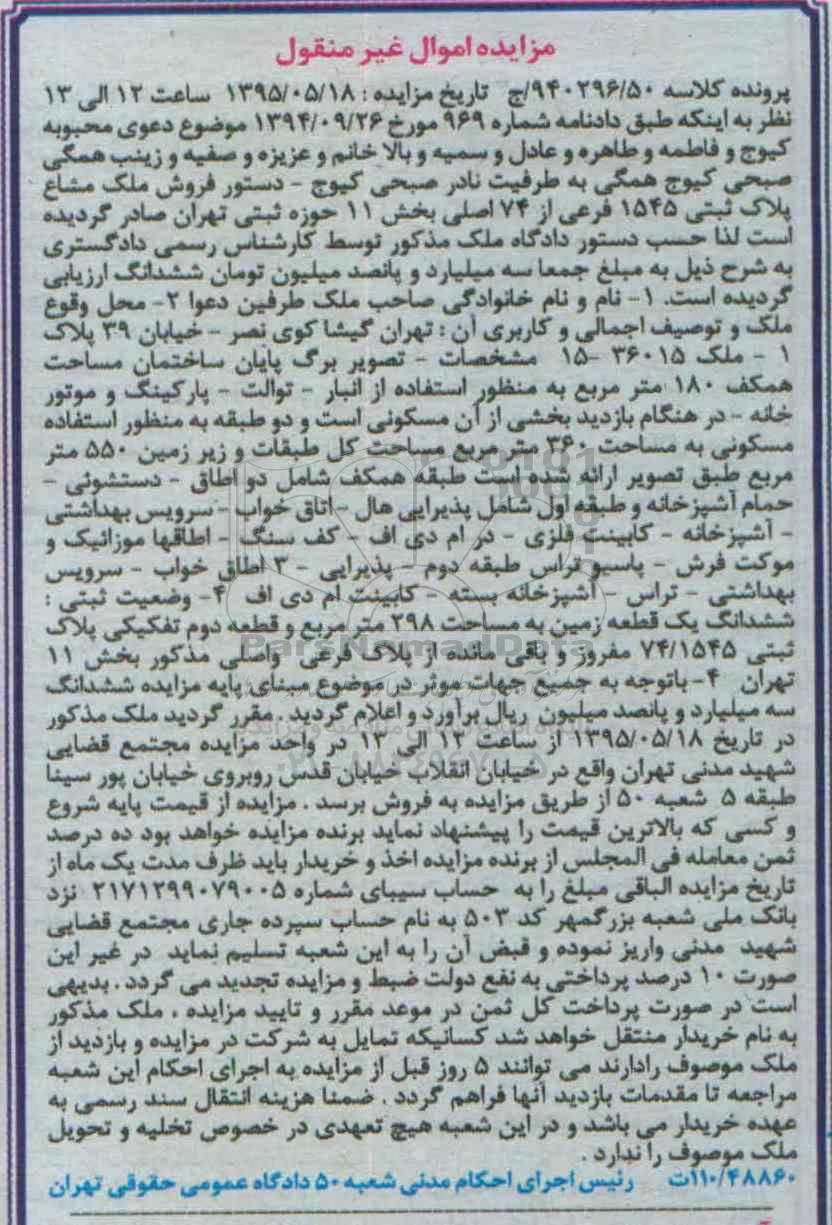 مزایده اموال غیر منقول
پرونده کلاسه ۹۴۰۲۹۶/۵۰/ج تاریخ مزایده : ۱۳۹۵/۰۵/۱۸ ساعت ۱۲ الی ۱۳
نظر به اینکه طبق دادنامه شماره ۹۶۹ مورخ ۱۳۹۴/۰۹/۲۶ موضوع دعوی محبوبه
کیوج و فاطمه و طاهره و عادل و سمیه و بالا خانم و عزیزه و صفیه و زینب همگی
صبحی کیوج همگی به طرفیت نادر صبحی کیوج - دستور فروش ملک مشاع
پلاک ثبتی ۱۵۴۵ فرعی از ۷۴ اصلی بخش ۱۱ حوزه ثبتی تهران صادر گردیده
است لذا حسب دستور دادگاه ملک مذکور توسط کارشناس رسمی دادگستری
به شرح ذیل به مبلغ جمعا سه میلیارد و پانصد میلیون تومان ششدانگ ارزیابی
گردیده است. ۱- نام و نام خانوادگی صاحب ملک طرفین دعوا ۲- محل وقوع
ملک و توصیف اجمالی و کاربری آن : تهران گیشا کوی نصر - خیابان ۳۹ پلاک
۱ - ملک ۳۶۰۱۵ -۱۵ مشخصات - تصویر برگ پایان ساختمان مساحت
همکف ۱۸۰ متر مربع به منظور استفاده از انبار - توالت - پارکینگ و موتور
خانه - در هنگام بازدید بخشی از آن مسکونی است و دو طبقه به منظور استفاده
مسکونی به مساحت ۳۶۰ متر مربع مساحت کل طبقات و زیر زمین ۵۵۰ متر
مربع طبق تصویر ارائه شده است طبقه همکف شامل دو اطاق - دستشوئی -
حمام آشپزخانه و طبقه اول شامل پذیرایی هال - اتاق خواب - سرویس بهداشتی
- آشپزخانه - کابینت فلزی - در ام دی اف - کف سنگ - اطاقها موزائیک و
موکت فرش - پاسیو تراس طبقه دوم - پذیرایی - ۳ اطاق خواب - سرویس
بهداشتی - تراس - آشپزخانه بسته - کابینت ام دی اف ۴- وضعیت ثبتی :
ششدانگ یک قطعه زمین به مساحت ۲۹۸ متر مربع و قطعه دوم تفکیکی پلاک
ثبتی ۷۴/۱۵۴۵ مفروز و باقی مانده از پلاک فرعی واصلی مذکور بخش ۱۱
تهران ۴- باتوجه به جمیع جهات موثر در موضوع مبنای پایه مزایده ششدانگ
سه میلیارد و پانصد میلیون ریال برآورد و اعلام گردید . مقرر گردید ملک مذکور
در تاریخ ۱۳۹۵/۰۵/۱۸ از ساعت ۱۲ الی ۱۳ در واحد مزایده مجتمع قضایی
شهید مدنی تهران واقع در خیابان انقلاب خیابان قدس روبروی خیابان پور سینا
طبقه ۵ شعبه ۵۰ از طریق مزایده به فروش برسد . مزایده از قیمت پایه شروع
و کسی که بالاترین قیمت را پیشنهاد نماید برنده مزایده خواهد بود ده درصد
ثمن معامله فی المجلس از برنده مزایده اخذ و خریدار باید ظرف مدت یک ماه از
تاریخ مزایده الباقی مبلغ را به حساب سیبای شماره ۲۱۷۱۲۹۹۰۷۹۰۰۵ نزد
بانک ملی شعبه بزرگمهر کد ۵۰۳ به نام حساب سپرده جاری مجتمع قضایی
شهید مدنی واریز نموده و قبض آن را به این شعبه تسلیم نماید در غیر این
صورت ۱۰ درصد پرداختی به نفع دولت ضبط و مزایده تجدید می گردد . بدیهی
است در صورت پرداخت کل ثمن در موعد مقرر و تایید مزایده ، ملک مذکور
به نام خریدار منتقل خواهد شد کسانیکه تمایل به شرکت در مزایده و بازدید از
ملک موصوف رادارند می توانند ۵ روز قبل از مزایده به اجرای احکام این شعبه
مراجعه تا مقدمات بازدید آنها فراهم گردد . ضمنا هزینه انتقال سند رسمی به
عهده خریدار می باشد و در این شعبه هیچ تعهدی در خصوص تخلیه و تحویل
ملک موصوف را ندارد .
۱۱۰/۴۸۸۶۰ت رئیس اجرای احکام مدنی شعبه ۵۰ دادگاه عمومی حقوقی تهران
ParsNamadData